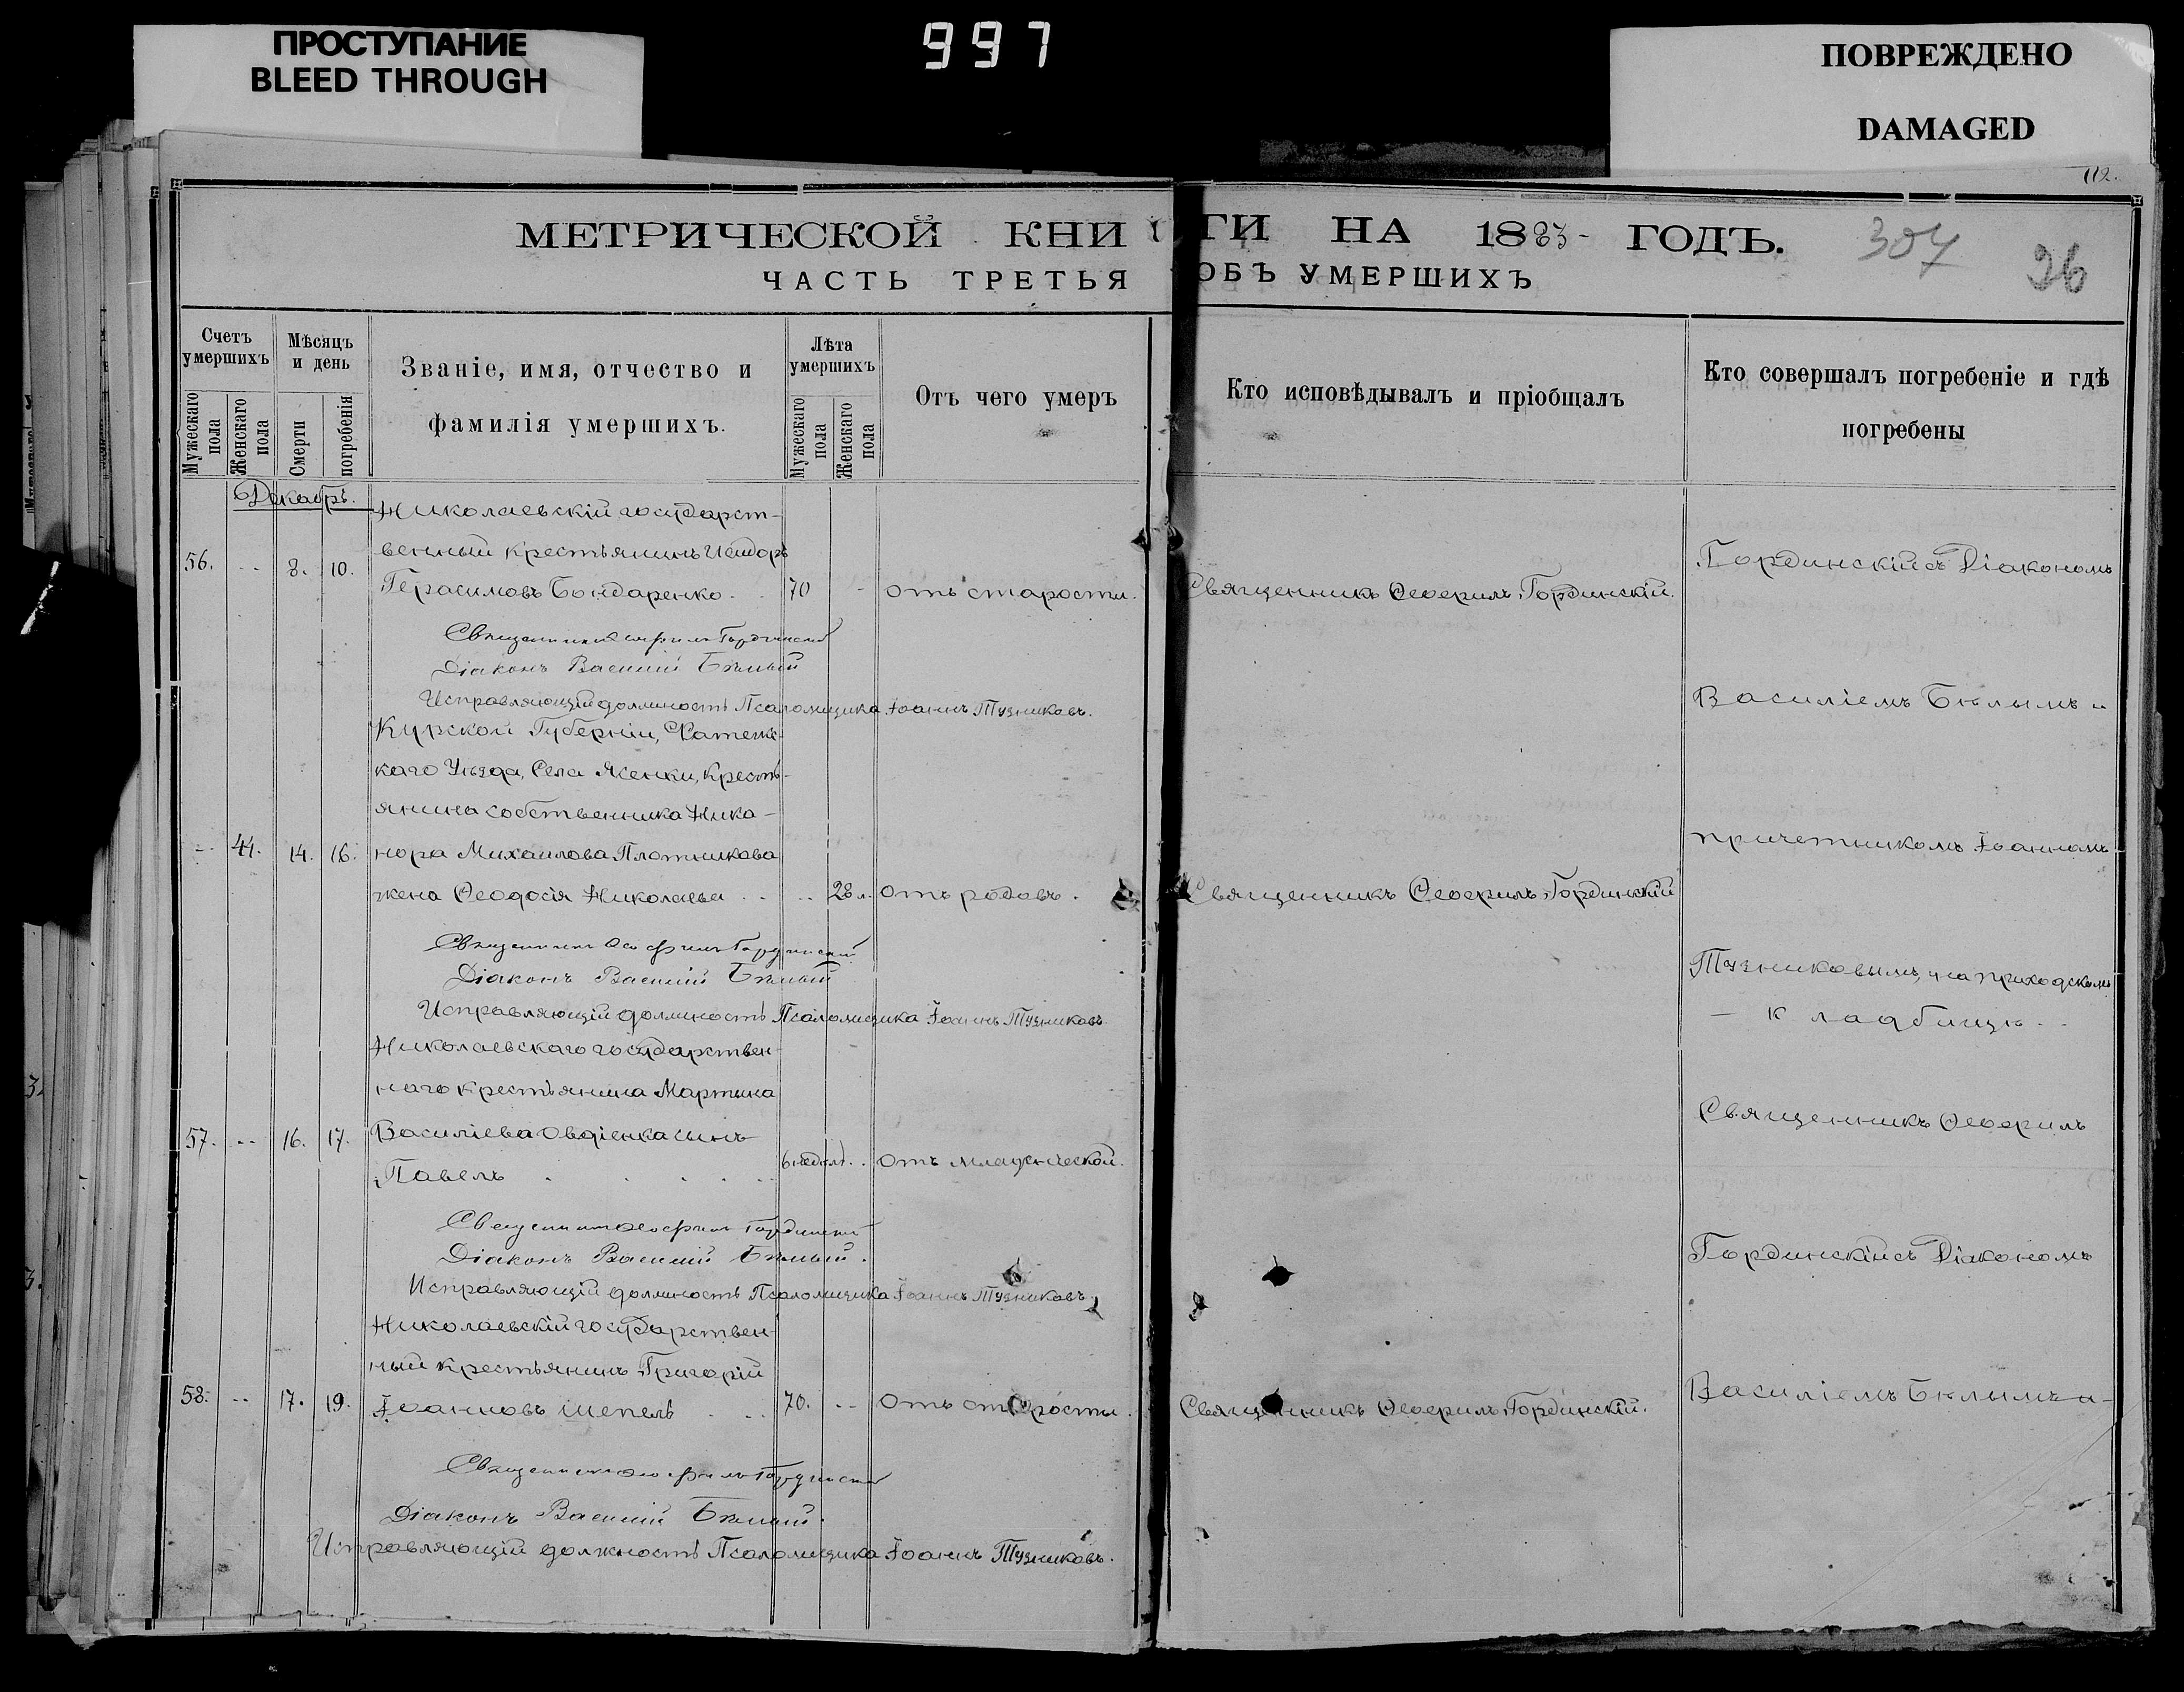 ПРОСТУПАНИЕ
BLEED THROUGH
997
ПОВРЕЖДЕНО
DAMAGED
112.
МЕТРИЧЕСКОЙ КНИГИ НА 1883 ГОДЪ.
307
26
ЧАСТЬ ТРЕТЬЯ ОБЪ УМЕРШИХЪ
Счетъ умершихъ
Мужескаго пола
Женскаго пола
Мѣсяцъ и день
Смерти
погребенія
Званіе, имя, отчество и
фамилія умершихъ.
Лѣта умершихъ
Мужескаго пола
Женскаго пола
Отъ чего умеръ
Кто исповѣдывалъ и пріобщалъ
Кто совершалъ погребеніе и гдѣ
погребены
Декабрь.
Николаевскій государст-
56. -- 8. 10. венный крестьянинъ
Герасимовъ Бондаренко 70 - отъ старости. Священникъ Ѳеофилъ Гординскій.
Гординскій съ Діакономъ
Священникъ Ѳеофилъ Гординскій
Діаконъ Василій Бѣлый
Исправляющій должность Псаломщика Іоаннъ Тузниковъ.
Василіемъ Бѣлымъ и
Курской Губерніи, Фатежс-
каго Уѣзда, Села Ясенки, Кресть-
янина собственника Ника-
-- 41. 14. 16. нора Михаилова Плотникова
жена Ѳеодосія Николаева -- 28 л. отъ родовъ. Священникъ Ѳеофилъ Гординскій
причетникомъ Іоанномъ
Священникъ Ѳеофилъ Гординскій
Діаконъ Василій Бѣлый
Исправляющій должность Псаломщика Іоаннъ Тузниковъ
Тузниковымъ, на приходскомъ
- кладбищѣ.
Николаевскаго государствен-
наго крестьянина Мартина
57. -- 16. 17. Василіева Овдіенка сынъ
Павелъ 6 недѣл. отъ младенческой.
Священникъ Ѳеофилъ
Священникъ Ѳеофилъ Гординскій
Діаконъ Василій Бѣлый.
Исправляющій должность Псаломщика Іоаннъ Тузниковъ.
Гординскій съ Діакономъ
Николаевскій государствен-
ный крестьянинъ Григорій
58. -- 17. 19. Іоанновъ Шепель 70. -- отъ старости. Священникъ Ѳеофилъ Гординскій.
Василіемъ Бѣлымъ и-
Священникъ Ѳеофилъ Гординскій
Діаконъ Василій Бѣлый.
Исправляющій должность Псаломщика Іоаннъ Тузниковъ.